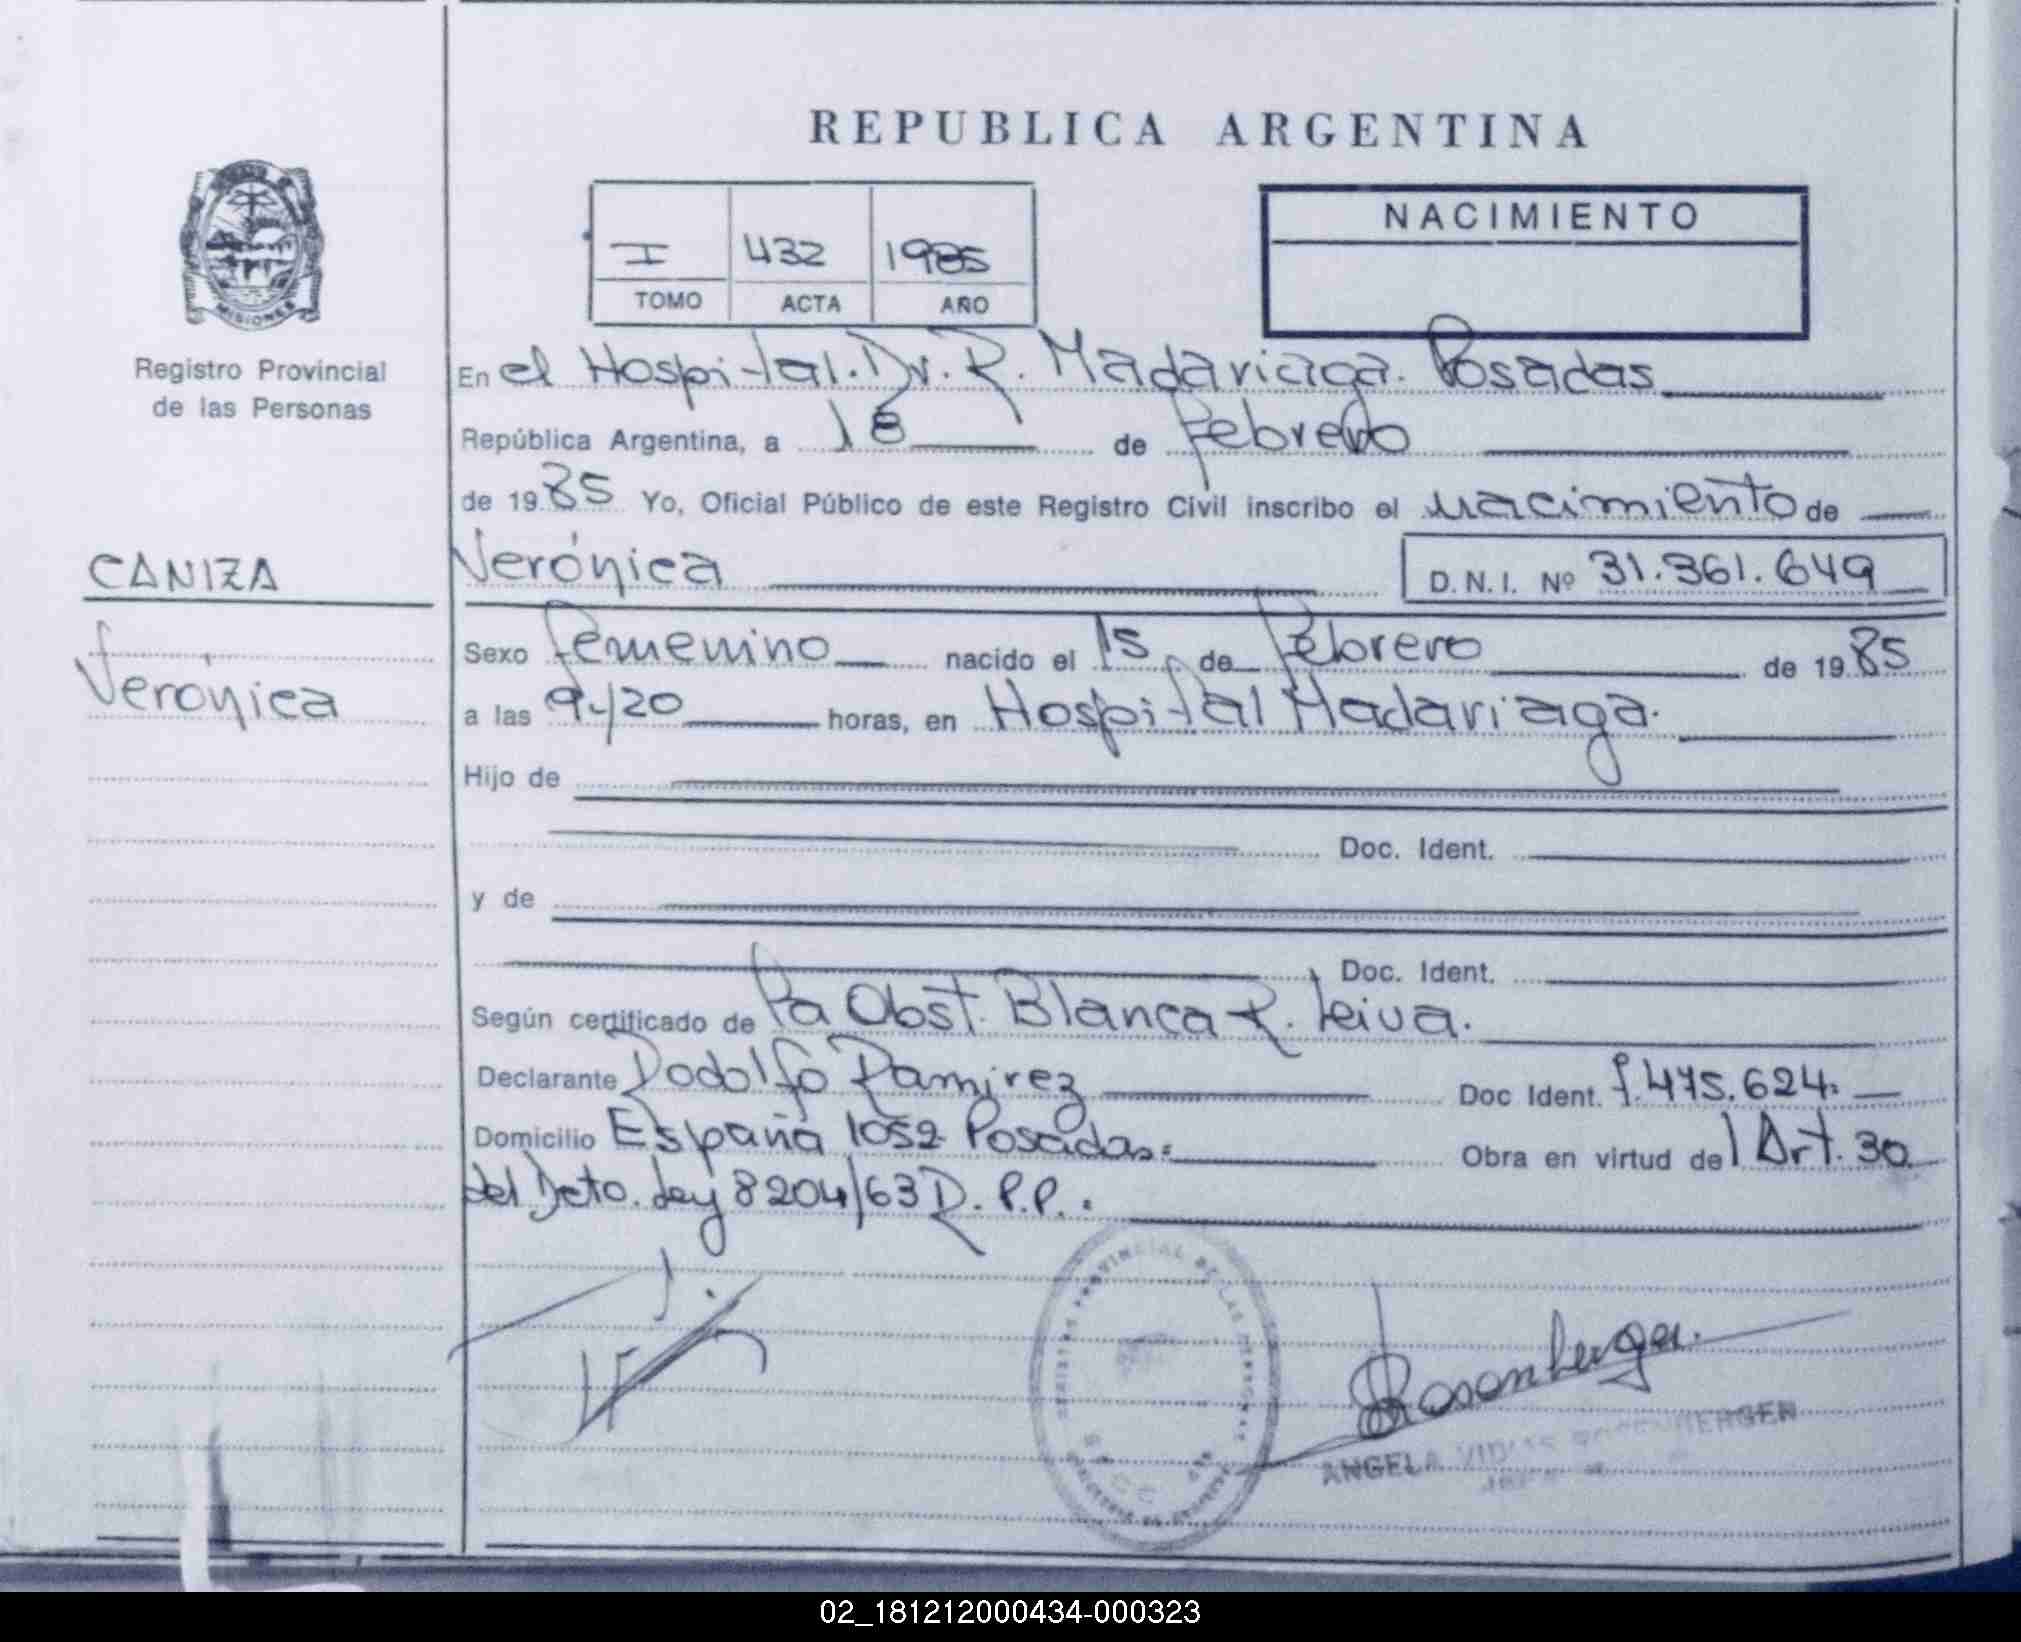 REPUBLICA ARGENTINA
I 432 1985
TOMO ACTA AÑO
NACIMIENTO
MISIONES
Registro Provincial
de las Personas
En el Hospital. Dr. R. Madariaga. Posadas
República Argentina, a 18 de Febrero
de 1985 Yo, Oficial Público de este Registro Civil inscribo el nacimiento de
CANIZA
Verónica
Verónica D.N.I. Nº 31.361.649
Sexo femenino nacido el 15 de Febrero de 1985
a las 9,20 horas, en Hospital Madariaga.
Hijo de
Doc. Ident.
y de
Doc. Ident.
Según certificado de Pa Obst. Blanca R. Leiva.
Declarante Rodolfo Ramirez Doc Ident. .475.624
Domicilio España 1052 Posadas Obra en virtud del Art. 30
del Dcto. Ley 8204/63 R.P.P.
PROVINCIAL DE LAS PERSONAS
Rosenberger
ANGELA ROSENBERGEN
02_181212000434-000323